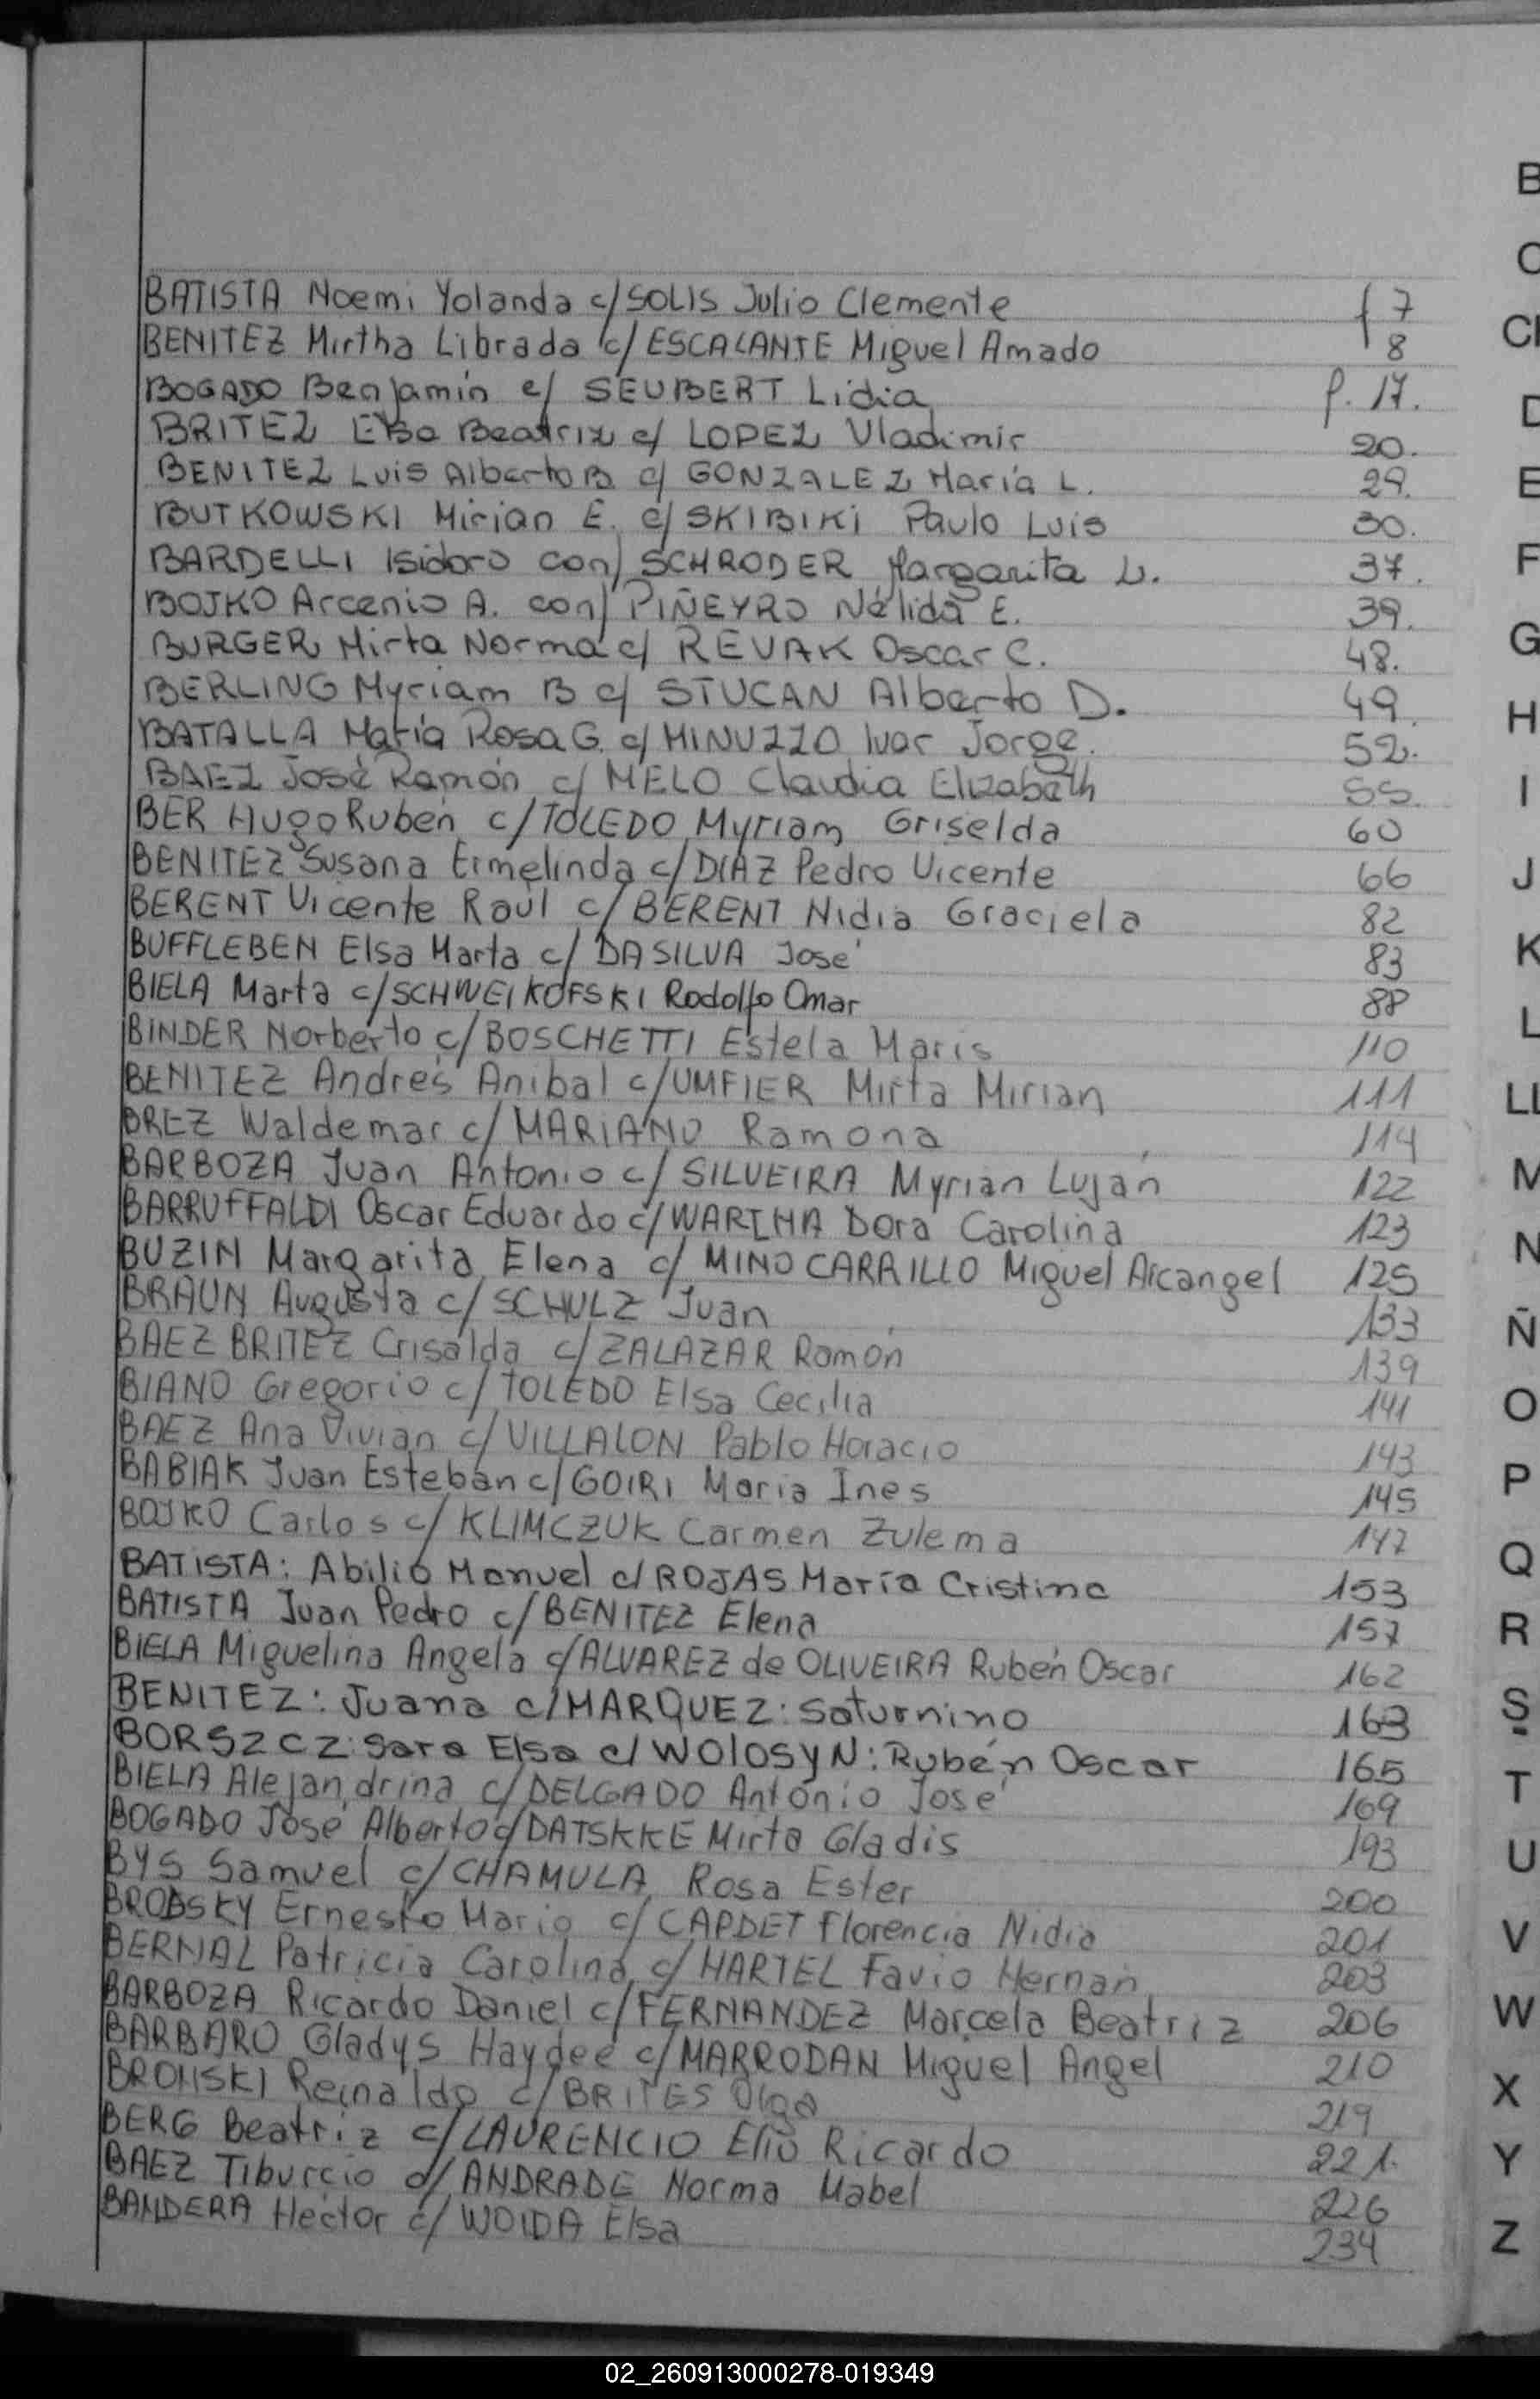 BATISTA Noemi Yolanda c/SOLIS Julio Clemente f 7
BENITEZ Mirtha Librada c/ESCALANTE Miguel Amado 8
BOGADO Benjamin c/ SEUBERT Lidia p. 17.
BRITEZ Elsa Beatriz c/ LOPEZ Vladimir 20.
BENITEZ Luis Alberto B. c/ GONZALEZ María L. 29.
BUTKOWSKI Mirian E. c/SKIBIKI Paulo Luis 30.
BARDELLI Isidoro con/ SCHRODER Margarita L. 37.
BOJKO Arcenio A. con/ PIÑEYRO Nélida E. 39.
BURGER Mirta Norma c/ REVAK Oscar C. 48.
BERLING Myriam B c/ STUCAN Alberto D. 49.
BATALLA María Rosa G. c/ MINUZZO Ivar Jorge. 52.
BAEZ José Ramón c/ MELO Claudia Elizabeth 55.
BER Hugo Ruben c/TOLEDO Myriam Griselda 60
BENITEZ Susana Ermelinda c/DIAZ Pedro Vicente 66
BERENT Vicente Raúl c/BERENT Nidia Graciela 82
BUFFLEBEN Elsa Marta c/ DASILVA José 83
BIELA Marta c/SCHWEIKOFSKI Rodolfo Omar 88
BINDER Norberto c/BOSCHETTI Estela Maris 110
BENITEZ Andrés Anibal c/UMFIER Mirta Mirian 111
BREZ Waldemar c/MARIANO Ramona 114
BARBOZA Juan Antonio c/ SILVEIRA Myrian Luján 122
BARRUFFALDI Oscar Eduardo c/ Dora Carolina 123
BUZIN Margarita Elena c/ MINO CARRILLO Miguel Arcangel 125
BRAUN Augusta c/SCHULZ Juan 133
BAEZ BRITEZ Crisalda c/ZALAZAR Ramón 139
BIANO Gregorio c/TOLEDO Elsa Cecilia 141
BAEZ Ana Vivian c/VILLALON Pablo Horacio 143
BABIAK Juan Esteban c/GOIRI Maria Ines 145
BOJKO Carlos c/KLIMCZUK Carmen Zulema 147
BATISTA: Abilio Manuel c/ROJAS María Cristina 153
BATISTA Juan Pedro c/BENITEZ Elena 157
BIELA Miguelina Angela c/ALVAREZ de OLIVEIRA Rubén Oscar 162
BENITEZ: Juana c/MARQUEZ: Saturnino 163
BORSZCZ: Sara Elsa c/WOLOSYN: Rubén Oscar 165
BIELA Alejandrina c/DELGADO Antonio José 169
BOGADO José Alberto c/DATSKKE Mirta Gladis 193
BYS Samuel c/CHAMULA Rosa Ester 200
BRODSKY Ernesto Mario c/CAPDET Florencia Nidia 201
BERNAL Patricia Carolina c/HARTEL Favio Hernan 203
BARBOZA Ricardo Daniel c/FERNANDEZ Marcela Beatriz 206
BARBARO Gladys Haydee c/MARRODAN Miguel Angel 210
BRONSKI Reinaldo c/BRITES Olga 219
BERG Beatriz c/LAURENCIO Elio Ricardo 221.
BAEZ Tiburcio c/ANDRADE Norma Mabel 226
BANDERA Hector c/ WOIDA Elsa 234
B
C
D
E
F
G
H
I
J
K
L
LL
M
N
Ñ
O
P
Q
R
S
T
U
V
W
X
Y
Z
02_260913000278-019349